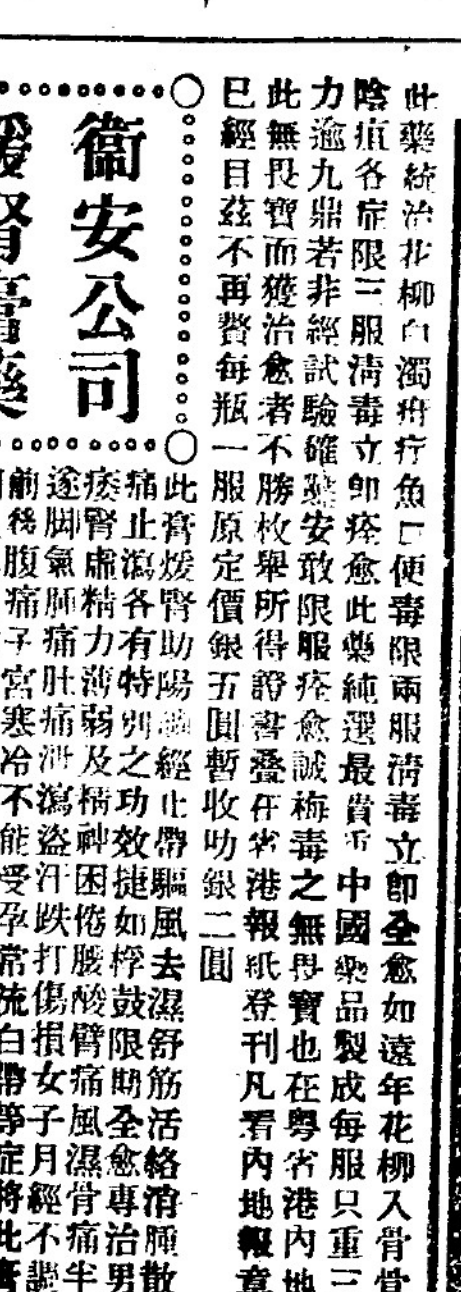 此藥統治花柳白濁疳疔魚口便毒限兩服清毒立卽全愈如遠年花柳入骨骨
陰疽各症限三服清毒立卽痊愈此藥純選最貴重中國藥品製成每服只重三
力逾九鼎若非經試驗確鑿安敢限服痊愈誠梅毒之無畏寶也在粵省港內地
此無畏寶而獲治愈者不勝枚舉所得證書叠存省港報紙登刊凡看內地報章
已經目茲不再贅每瓶一服原定價銀五圓暫收叻銀二圓
衞安公司
煖腎膏藥
此膏煖腎助陽調經止帶驅風去濕舒筋活絡消腫散
痛止瀉各有特別之功效捷如桴鼓限期全愈專治男
痿腎虛精力薄弱及精神困倦腰酸臂痛風濕骨痛半
遂脚氣肺痛肚痛泄瀉盜汗跌打傷損女子月經不調
前後腹痛子宮寒冷不能受孕常流白帶等症將此膏